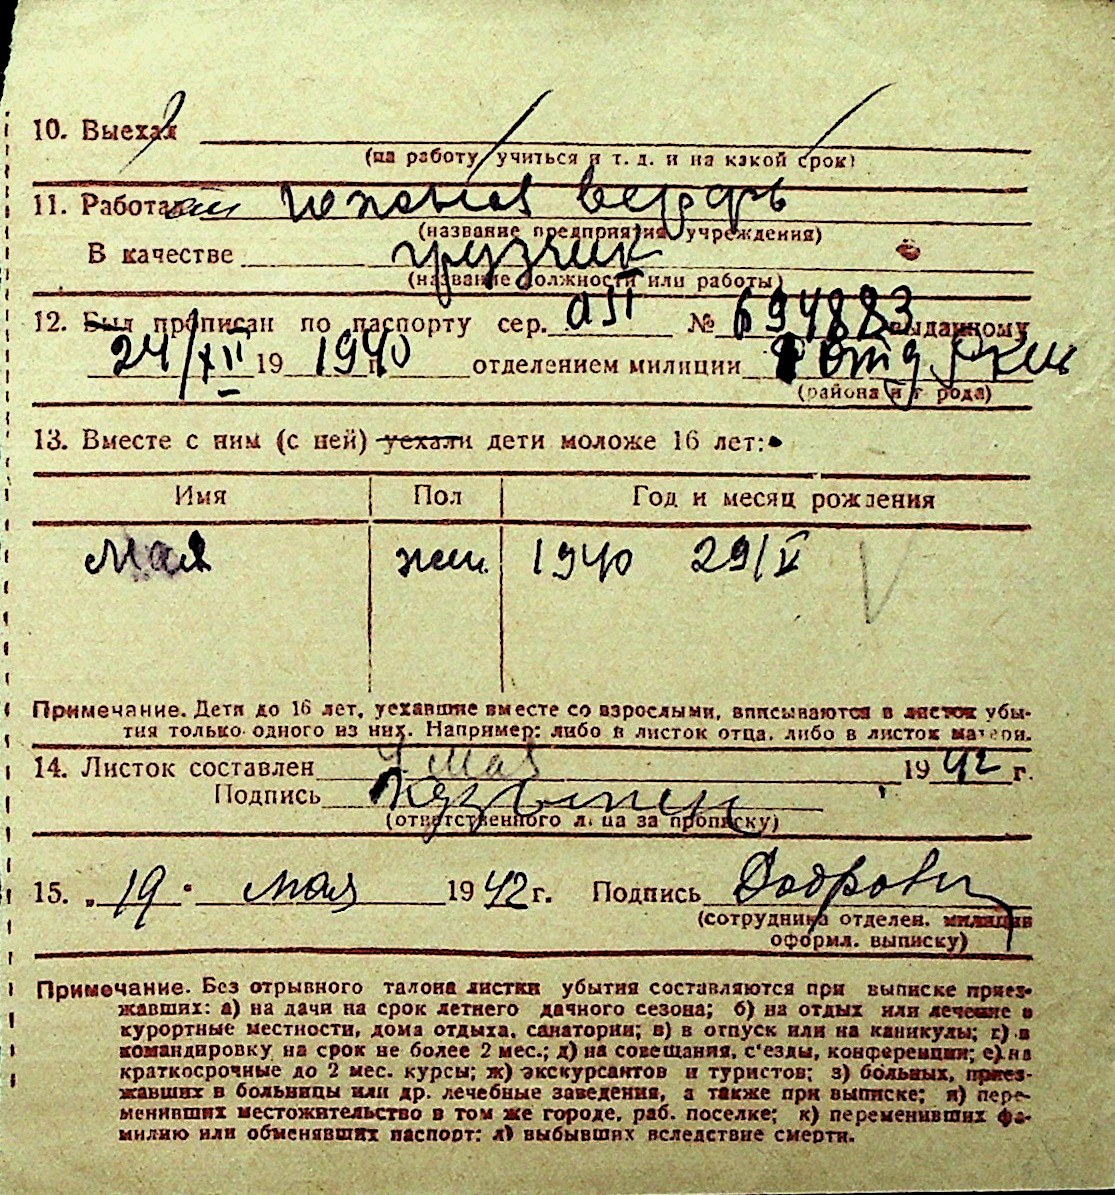 10. Выехал
(на работу учиться и т. д. и на какой срок)
11. Работал южная верфь
(название предприятия, учреждения)
В качестве грузчик
(название должности или работы)
12. Был прописан по паспорту сер. № 694883 выданному
24/XII 19 1940 г. отделением милиции
(района и города)
13. Вместе с ним (с ней) уехали дети моложе 16 лет:
Имя Пол Год и месяц рождения
Мая жен. 1940 29/V
Примечание. Дети до 16 лет, уехавшие вместе со взрослыми, вписываются в листок убы-
тия только одного из них. Например: либо в листок отца, либо в листок матери.
14. Листок составлен 4 мая 1942 г.
Подпись
(ответственного лица за прописку)
15. „19" мая 1942 г. Подпись
(сотрудника отделен. милиции
оформл. выписку)
Примечание. Без отрывного талона листки убытия составляются при выписке приез-
жавших: а) на дачи на срок летнего дачного сезона; б) на отдых или лечение в
курортные местности, дома отдыха, санатории; в) в отпуск или на каникулы; г) в
командировку на срок не более 2 мес.; д) на совещания, с'езды, конференции; е) на
краткосрочные до 2 мес. курсы; ж) экскурсантов и туристов; з) больных, приез-
жавших в больницы или др. лечебные заведения, а также при выписке; и) пере-
менивших местожительство в том же городе, раб. поселке; к) переменивших фа-
милию или обменявших паспорт; л) выбывших вследствие смерти.